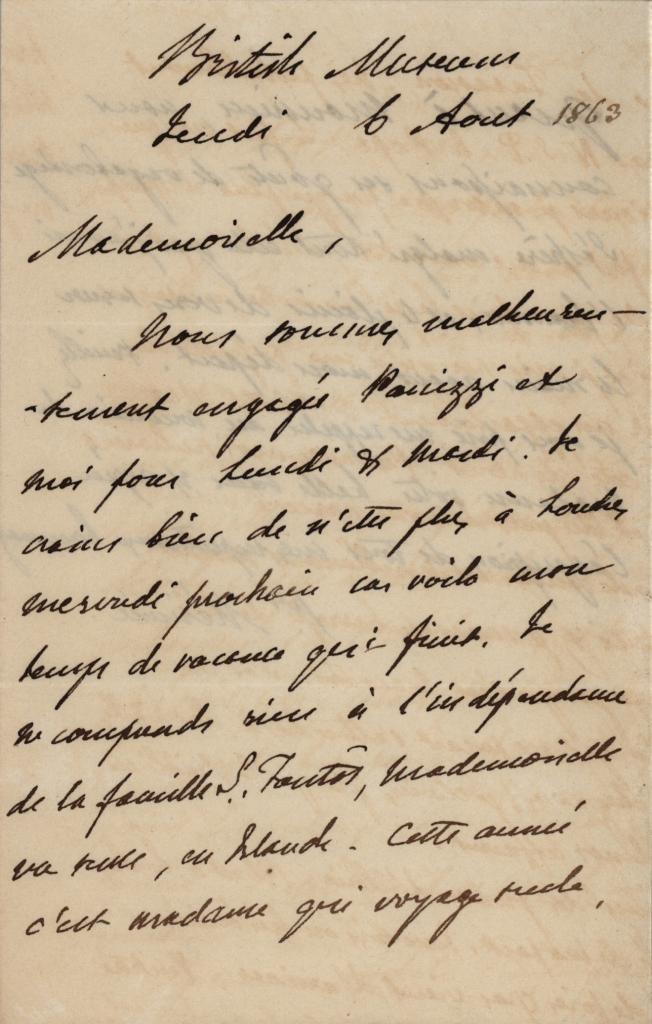 British Museum
Jeudi 6 Aout 1863
Mademoiselle,
Nous sommes malheureu-
-sement engagés Panizzi et
moi pour Lundi & Mardi. Je
crains bien de n'etre plus à Londres
mercredi prochain car voila mon
temps de vacance qui finit. Je
ne comprends rien à l'indépendance
de la famille S. Tantôt, Mademoiselle
va seule, en Irlande. Cette année
c'est madame qui voyage seule,